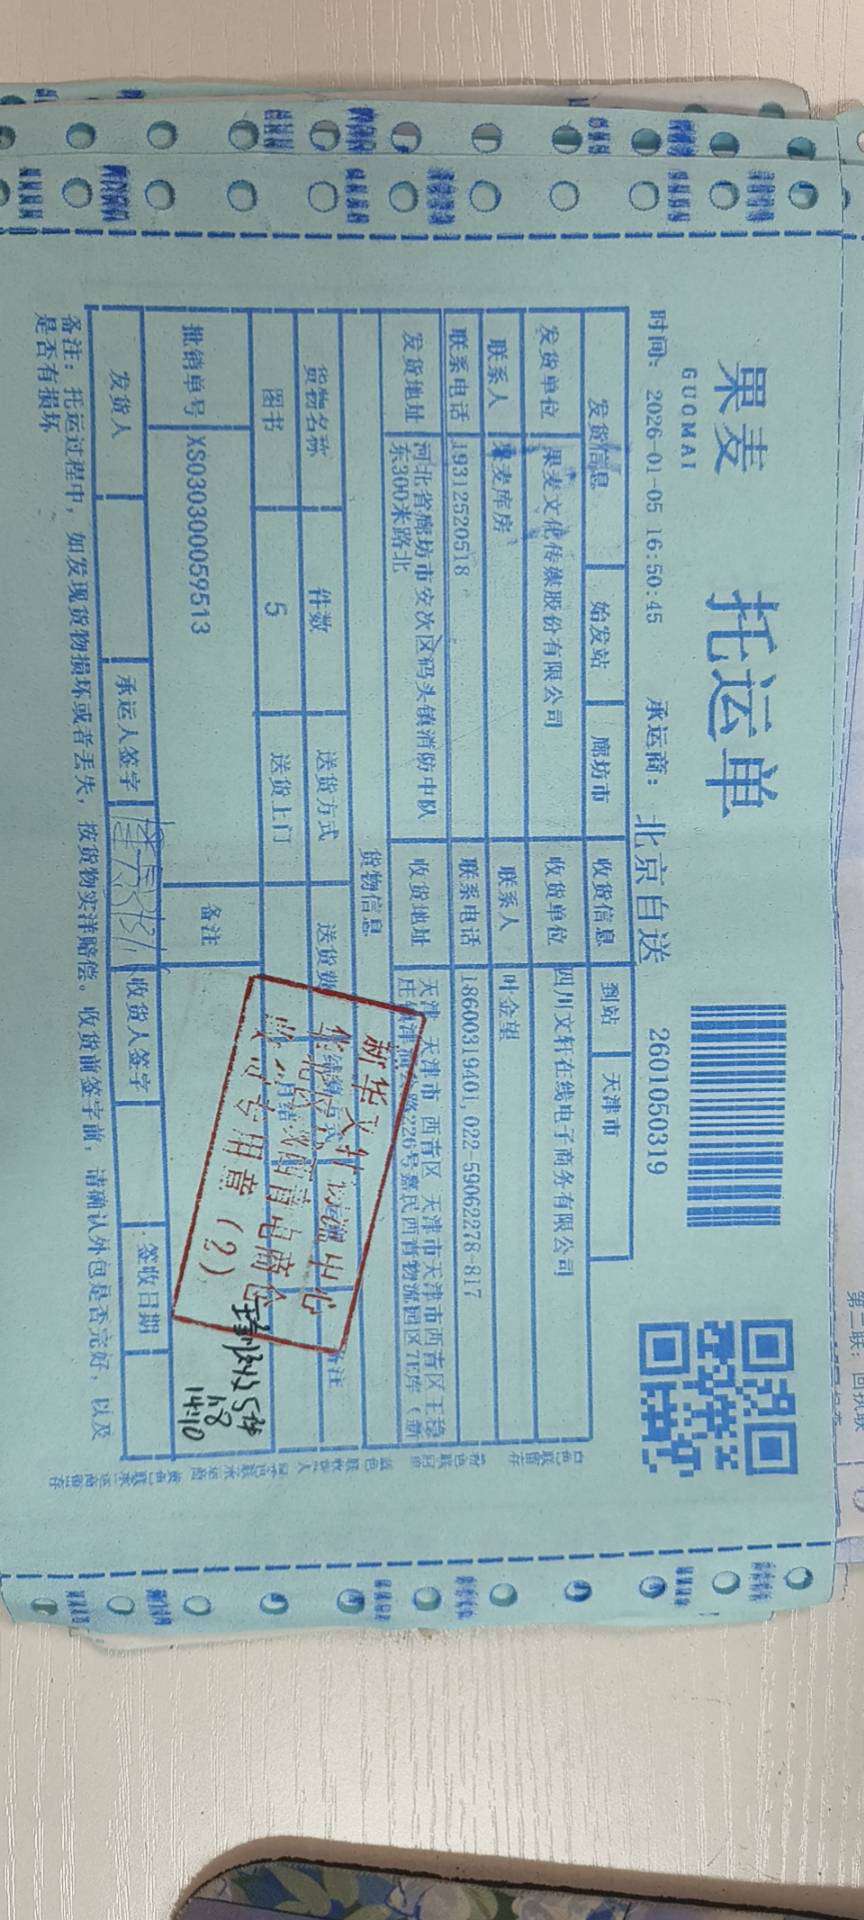 果麦 托运单
GUOMAI
时间: 2026-01-05 16:50:45 承运商: 北京自送 2601050319
发货信息 始发站 廊坊市 收货信息 到站 天津市
发货单位 果麦文化传媒股份有限公司 收货单位 四川文轩在线电子商务有限公司
联系人 果麦库房 联系人 叶金望
联系电话 19312520518 联系电话 18600319401,022-59062278-817
发货地址 河北省廊坊市安次区码头镇消防中队东300米路北 收货地址 天津 天津市 西青区 天津市天津市西青区王稳庄 226号嘉民西青物流园区7E库
货物信息
货物名称 件数 送货方式 送货费 备注
图书 5 送货上门 月结
批销单号 XS030300059513 备注
发货人 承运人签字 收货人签字 签收日期
备注: 托运过程中, 如发现货物损坏或者丢失, 按货物实洋赔偿。收货前签字前, 请确认外包是否完好, 以及
是否有损坏
新华文轩物流中心
收 专用章(2)
1.8
14:10
第二联: 回执联